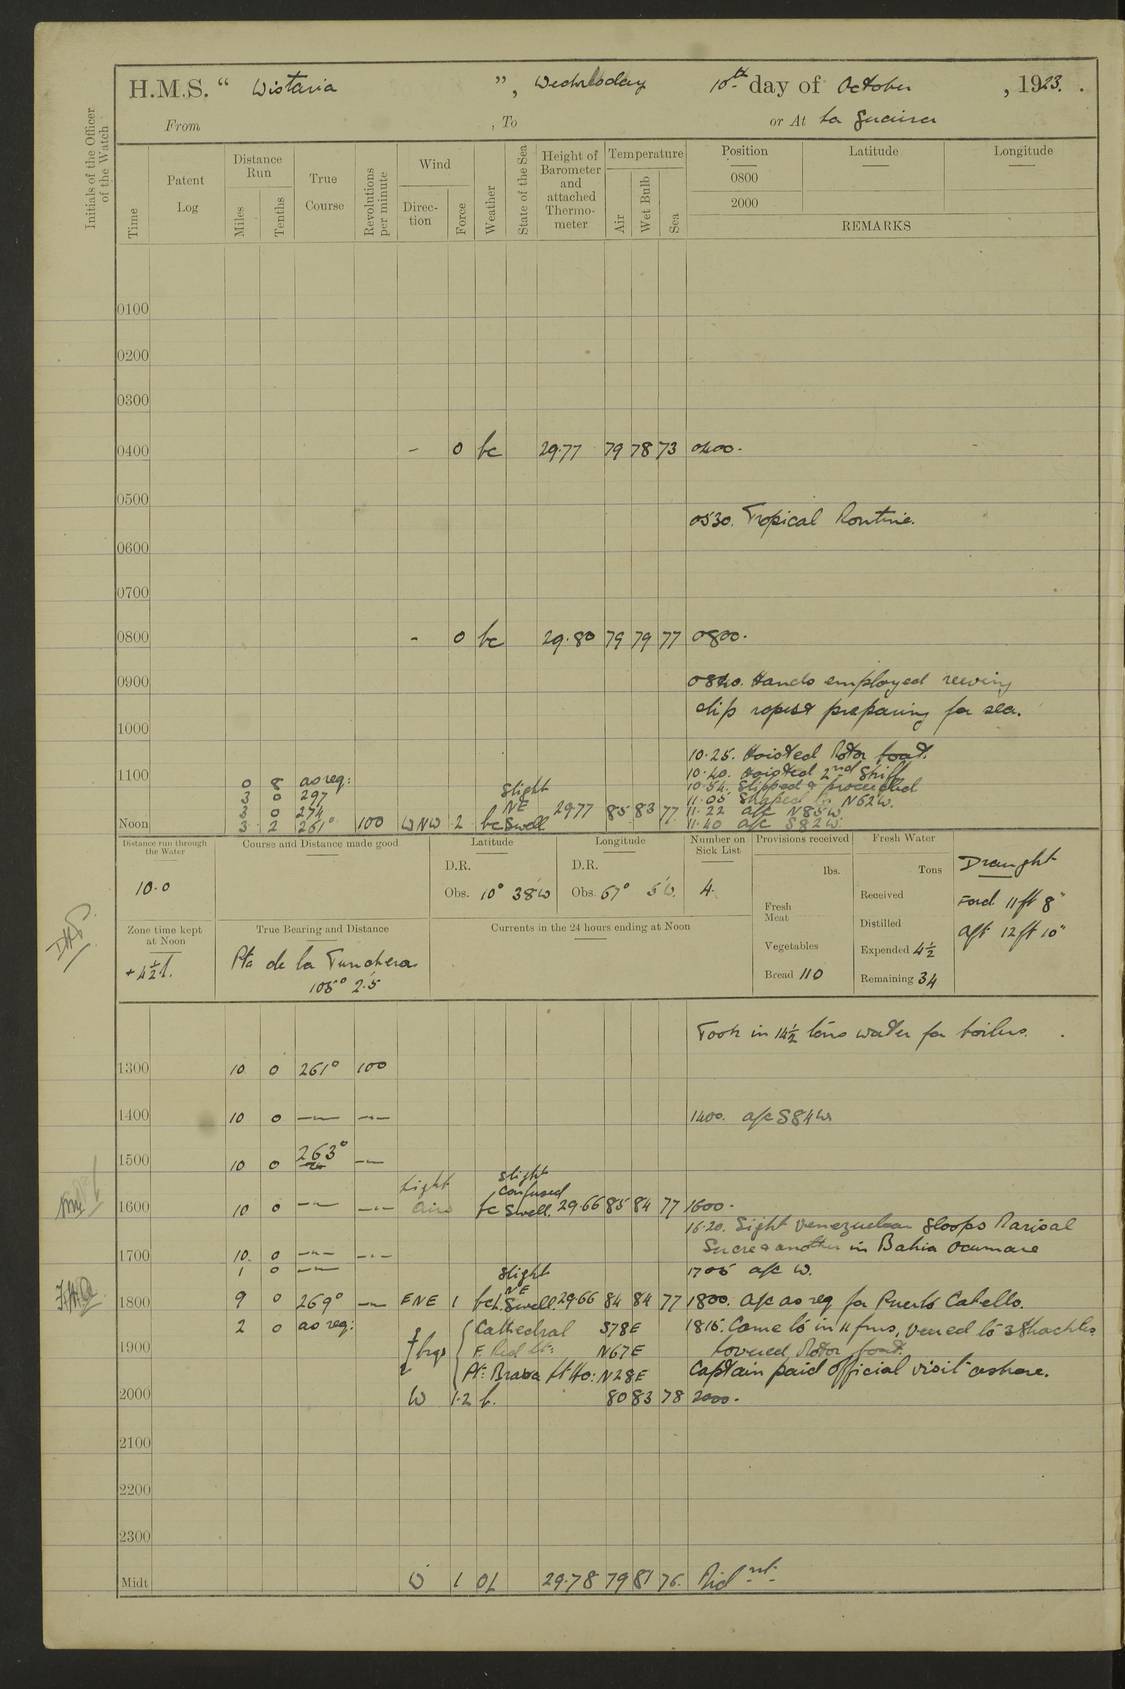 H.M.S. " Wistaria ", Wednesday 10th day of October, 1923.
From , To or At La Guaira
Initials of the Officer of the Watch
Time
Patent Log
Distance Run
Miles
Tenths
True Course
Revolutions per minute
Wind
Direction
Force
Weather
State of the Sea
Height of Barometer and attached Thermometer
Temperature
Air
Wet Bulb
Sea
Position Latitude Longitude
0800
2000
REMARKS
0100
0200
0300
0400 - 0 bc 29.77 79 78 73 0400.
0500
0530. Tropical Routine.
0600
0700
0800 - 0 bc 29.80 79 79 77 0800.
0900 0840. Hands employed reeving
slip ropes & preparing for sea.
1000
10.25. Hoisted Motor boat.
10.40. Hoisted 2nd Skiff
1100 0 8 as req: 10.54. Slipped & proceeded
3 0 297 Slight 11.05 Shaped N62W.
3 0 274 NE 11.22 a/c N85W
Noon 3 2 261° 100 WNW 2 bc Swell 29.77 85 83 77 11.40 a/c S82W.
Distance run through the Water
10.0
Course and Distance made good
Latitude
D.R.
Obs. 10° 38'
Longitude
D.R.
Obs. 67° 5'W.
Number on Sick List
4.
Provisions received
lbs.
Fresh Meat
Vegetables
Bread 110
Fresh Water
Tons
Received
Distilled
Expended 4½
Remaining 34
Draught
Ford 11ft 8"
Aft 12ft 10"
Zone time kept at Noon
+4½
True Bearing and Distance
Pta de la
105° 2.5
Currents in the 24 hours ending at Noon
Took in 14½ tons water for boilers.
1300 10 0 261° 100
1400 10 0 —"— —"— 1400. a/c S84W
1500 10 0 263° —"—
Light Slight
confused
1600 10 0 —"— —"— airs bc Swell. 29.66 85 84 77 1600.
16.20. Sight Venezuelan Sloops Mariscal
Sucre & another in Bahia Ocumare
1700 10 0 —"— —"—
1 0 —"— Slight 1705 a/c W.
NE
1800 9 0 269° —"— ENE 1 bcL. Swell. 29.66 84 84 77 1800. a/c as req for Puerto Cabello.
2 0 as req: Cathedral S78E 1815. Came to in 11 fms, veered to 3 Shackles
1900 brgs F. Red Lt: N67E Lowered Motor boat.
Pt: Brava Lt Ho: N28E Captain paid official visit ashore.
2000 W 1.2 b. 80 83 78 2000.
2100
2200
2300
Midt W 1 OL 29.78 79 81 76.